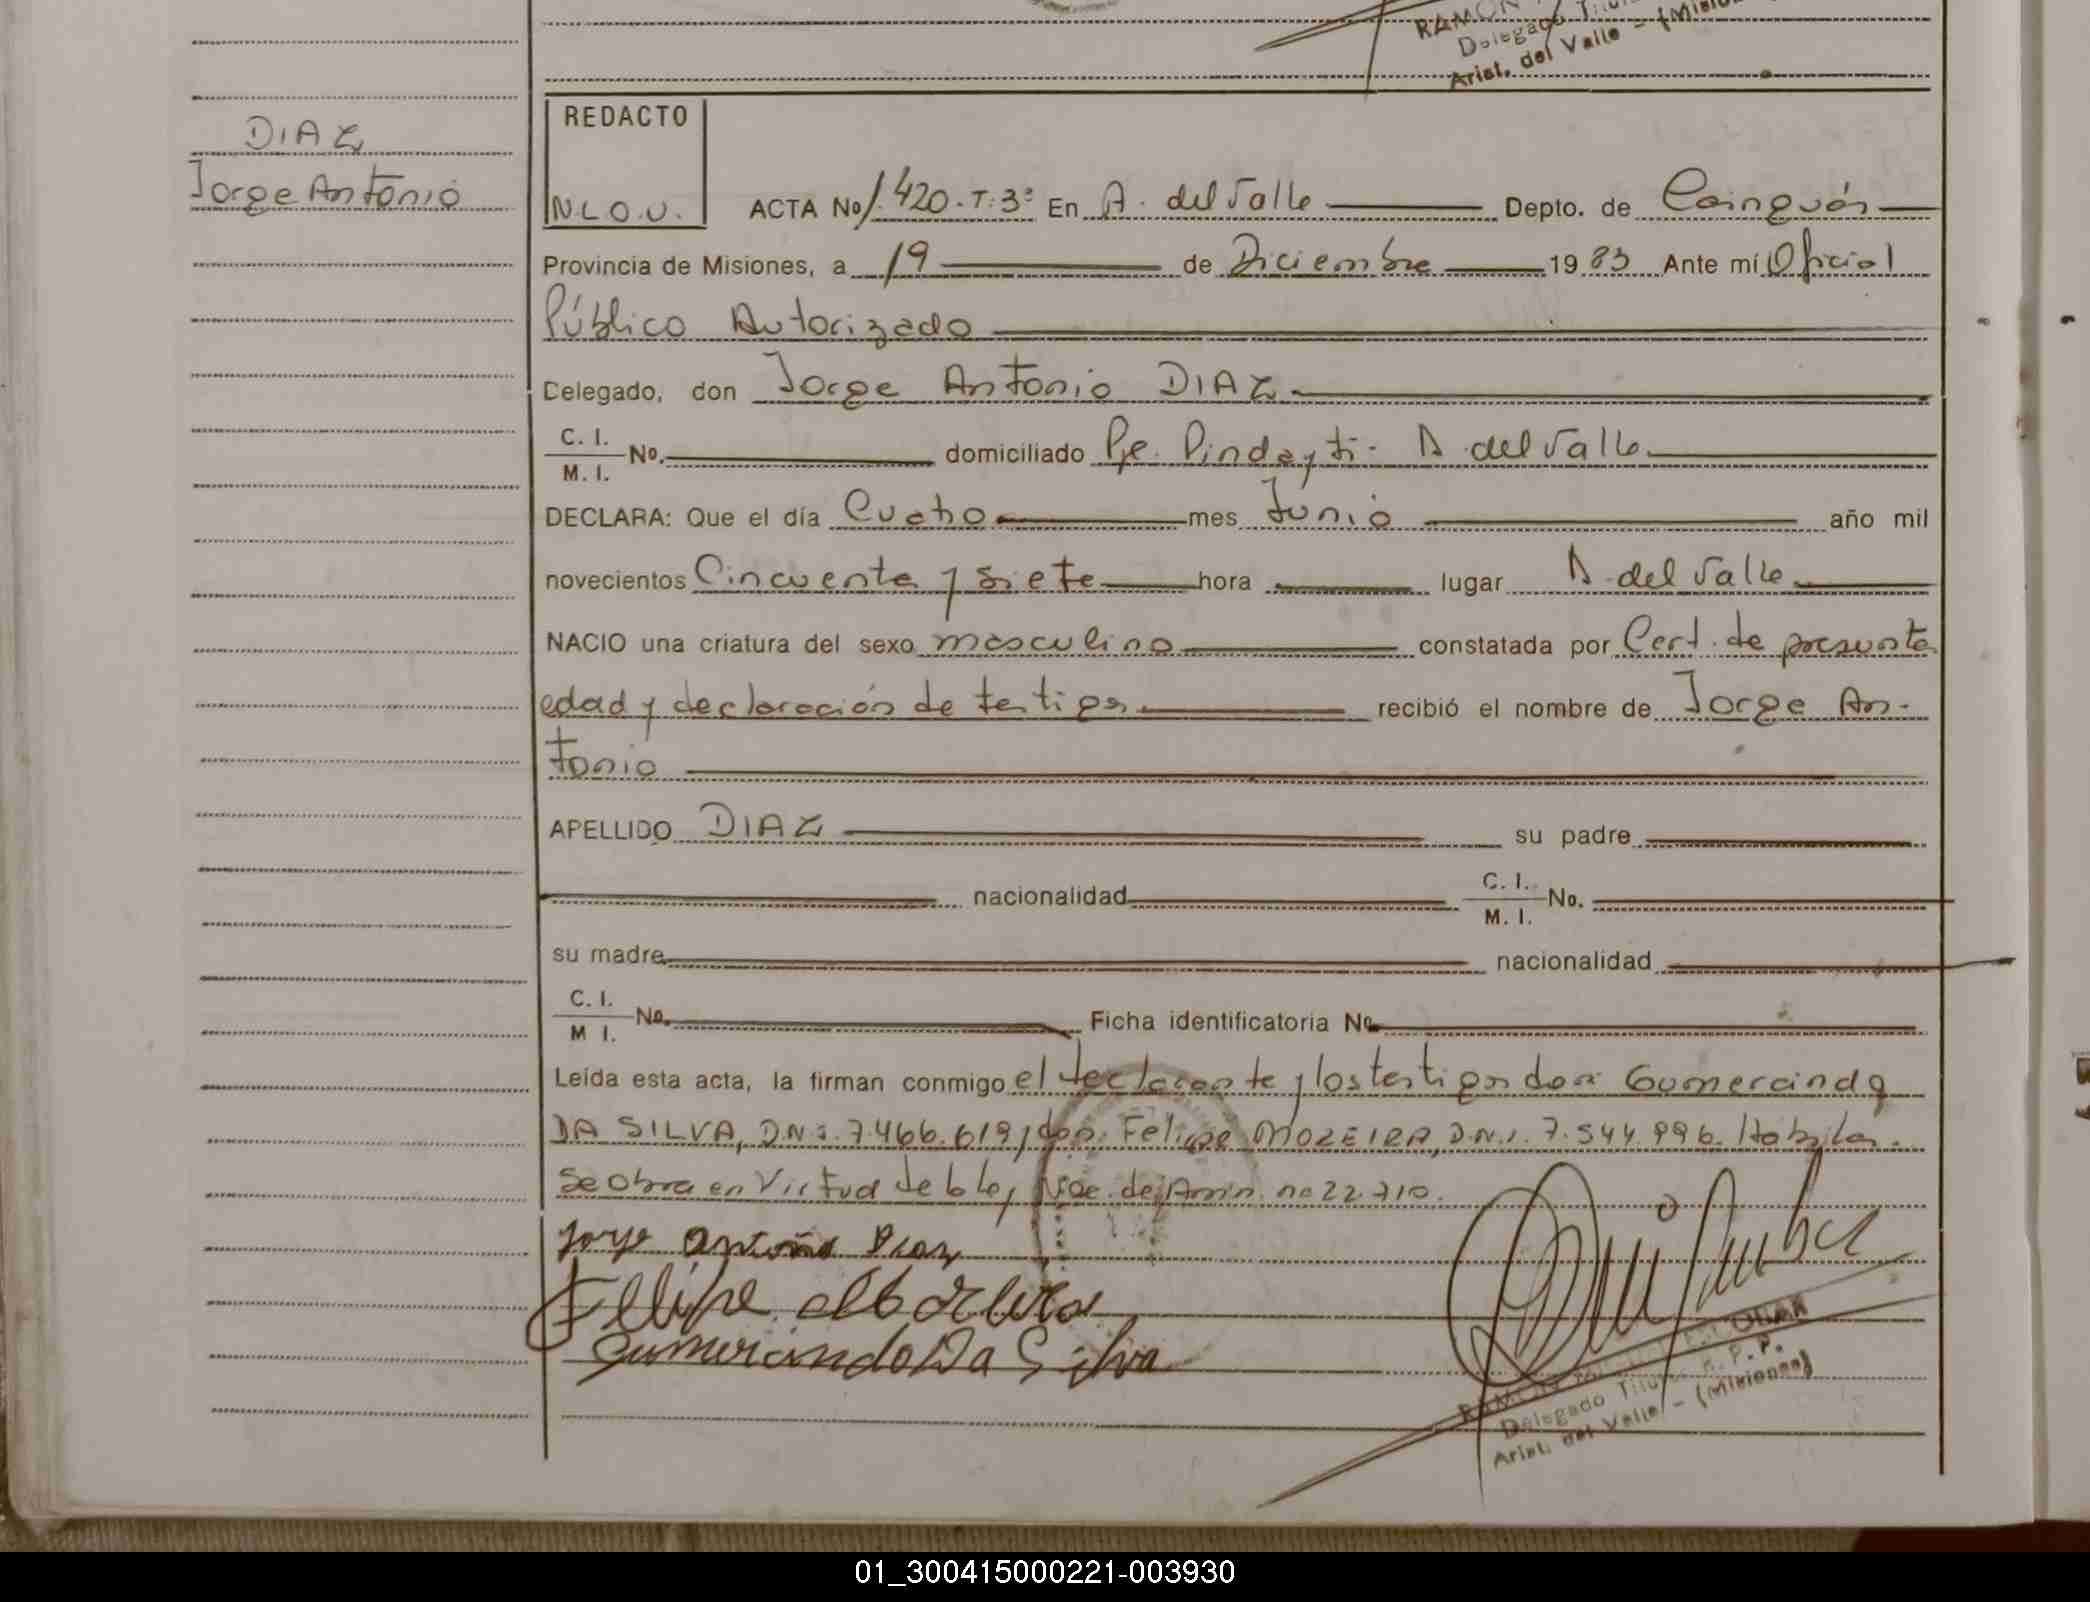 RAMON
Delegado Titul
Arist. del Valle - (Mision
DIAZ
Jorge Antonio
REDACTO
N.L.O.U.
ACTA No 1.420.T.3º En A. del Valle Depto. de Cainguás
Provincia de Misiones, a 19 de Diciembre 1983 Ante mí Oficial
Público Autorizado
Delegado, don Jorge Antonio DIAZ
C. I.
M. I. No. domiciliado Pje. Pindayti - A. del Valle
DECLARA: Que el día mes Junio año mil
novecientos Cincuenta y siete hora lugar A. del Valle
NACIO una criatura del sexo masculino constatada por Cert. de presunta
edad y declaración de testigos recibió el nombre de Jorge An-
tonio
APELLIDO DIAZ su padre
nacionalidad C. I.
M. I. No.
su madre nacionalidad
C. I.
M I. No. Ficha identificatoria No
Leída esta acta, la firman conmigo el declarante y los testigos don: Gumercindo
DA SILVA, D.N.I. 7.466.619 y don: Felipe MOREIRA, D.N.I. 7.544.996. Habiles.
Se obra en Virtud de la Ley Nac. de Amn. no 22.710.
Jorge Antonio Diaz
Gumercindo Da Silva
Delegado Titular R. P. P.
Arist. del Valle - (Misiones)
01_300415000221-003930